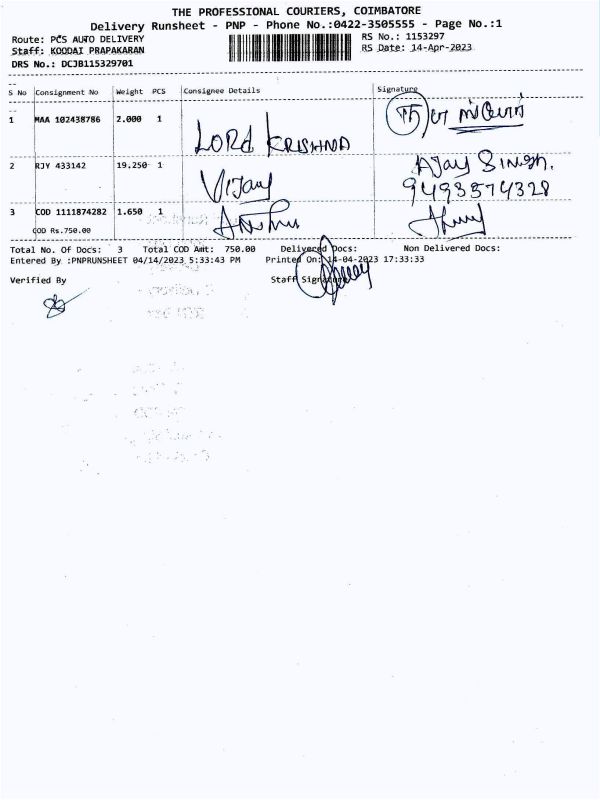 THE PROFESSIONAL COURIERS, COIMBATORE
Delivery Runsheet - PNP - Phone No.:0422-3505555 - Page No.:1
Route: PCS AUTO DELIVERY RS No.: 1153297
Staff: KOODAI PRAPAKARAN RS Date: 14-Apr-2023
DRS No.: DCJB115329701
S No Consignment No Weight PCS Consignee Details Signature
1 MAA 102438786 2.000 1 LORD KRISHNA
2 RJY 433142 19.250 1 Vijay Ajay Singh.
9493574328
3 COD 1111874282 1.650 1
COD Rs.750.00
Total No. Of Docs: 3 Total COD Amt: 750.00 Delivered Docs: Non Delivered Docs:
Entered By :PNPRUNSHEET 04/14/2023 5:33:43 PM Printed On: 14-04-2023 17:33:33
Verified By Staff Signature